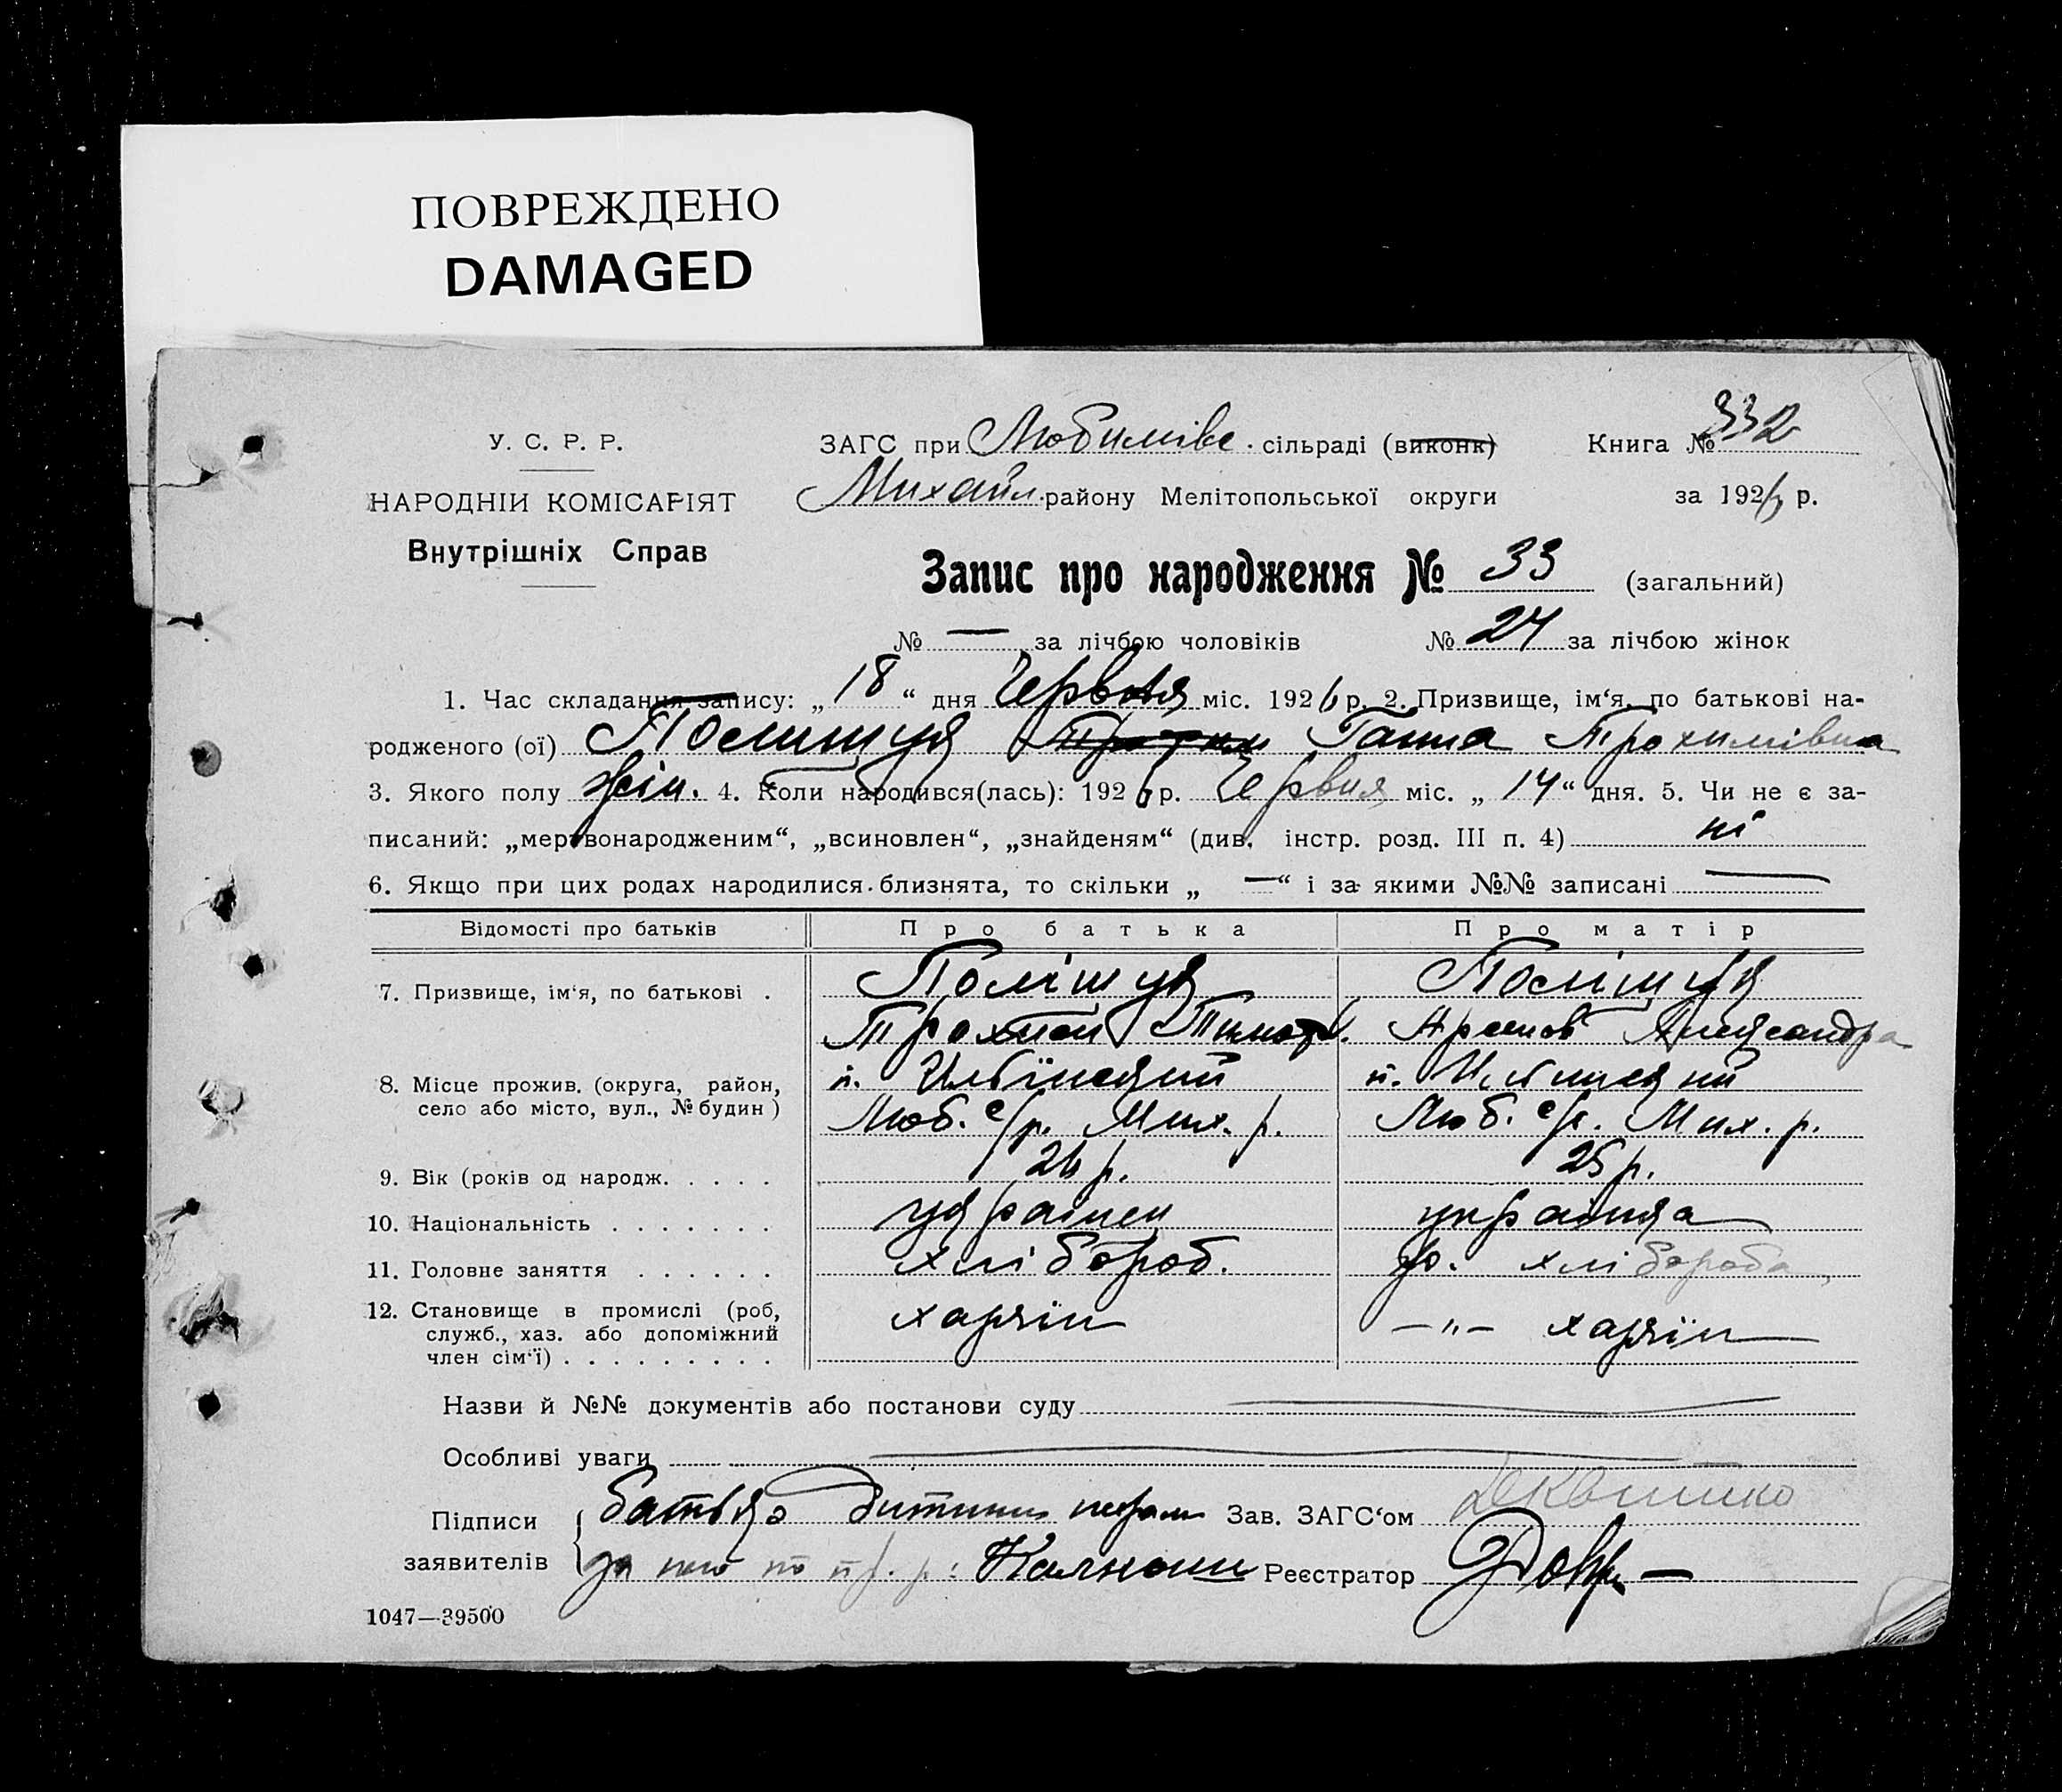 ПОВРЕЖДЕНО
DAMAGED
У. С. Р. Р.
НАРОДНІЙ КОМІСАРІЯТ
Внутрішніх Справ
ЗАГС при Любимівс. сільраді (виконк) Книга № 332
Михайл. району Мелітопольської округи за 1926 р.
Запис про народження № 33 (загальний)
№ — за лічбою чоловіків № 24 за лічбою жінок
1. Час складання запису: „18“ дня Червня міс. 1926 р. 2. Призвище, ім‘я, по батькові на-
родженого (ої) Полищук Ганна Трохимівна
3. Якого полу жін. 4. Коли народився(лась): 1926 р. Червня міс. „14“ дня. 5. Чи не є за-
писаний: „мертвонародженим“, „всиновлен“, „знайденям“ (див. інстр. розд. III п. 4) ні
6. Якщо при цих родах народилися близнята, то скільки „—“ і за якими №№ записані —
Відомості про батьків Про батька Про матір
7. Призвище, ім‘я, по батькові . Поліщук Поліщук
Трохим Тимоф. Александра
8. Місце прожив. (округа, район, п. Ильїнский п. Ильинский
село або місто, вул., № будин) Люб. с/р. Мих. р. Люб. с/р. Мих. р.
9. Вік (років од народж. . . . . 26 р. 25 р.
10. Національність . . . . . . . украінец украінка
11. Головне заняття . . . . . . хлібороб. хлібороба
12. Становище в промислі (роб, хазяїн —„— хазяїн
служб., хаз. або допоміжний
член сім‘ї) . . . . . . . . .
Назви й №№ документів або постанови суду
Особливі уваги
Підписи батько дитини неграм Зав. ЗАГС‘ом
заявителів за його по пр. р.: Реєстратор
1047—39500